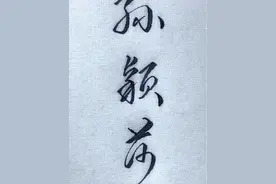 孙颖莎